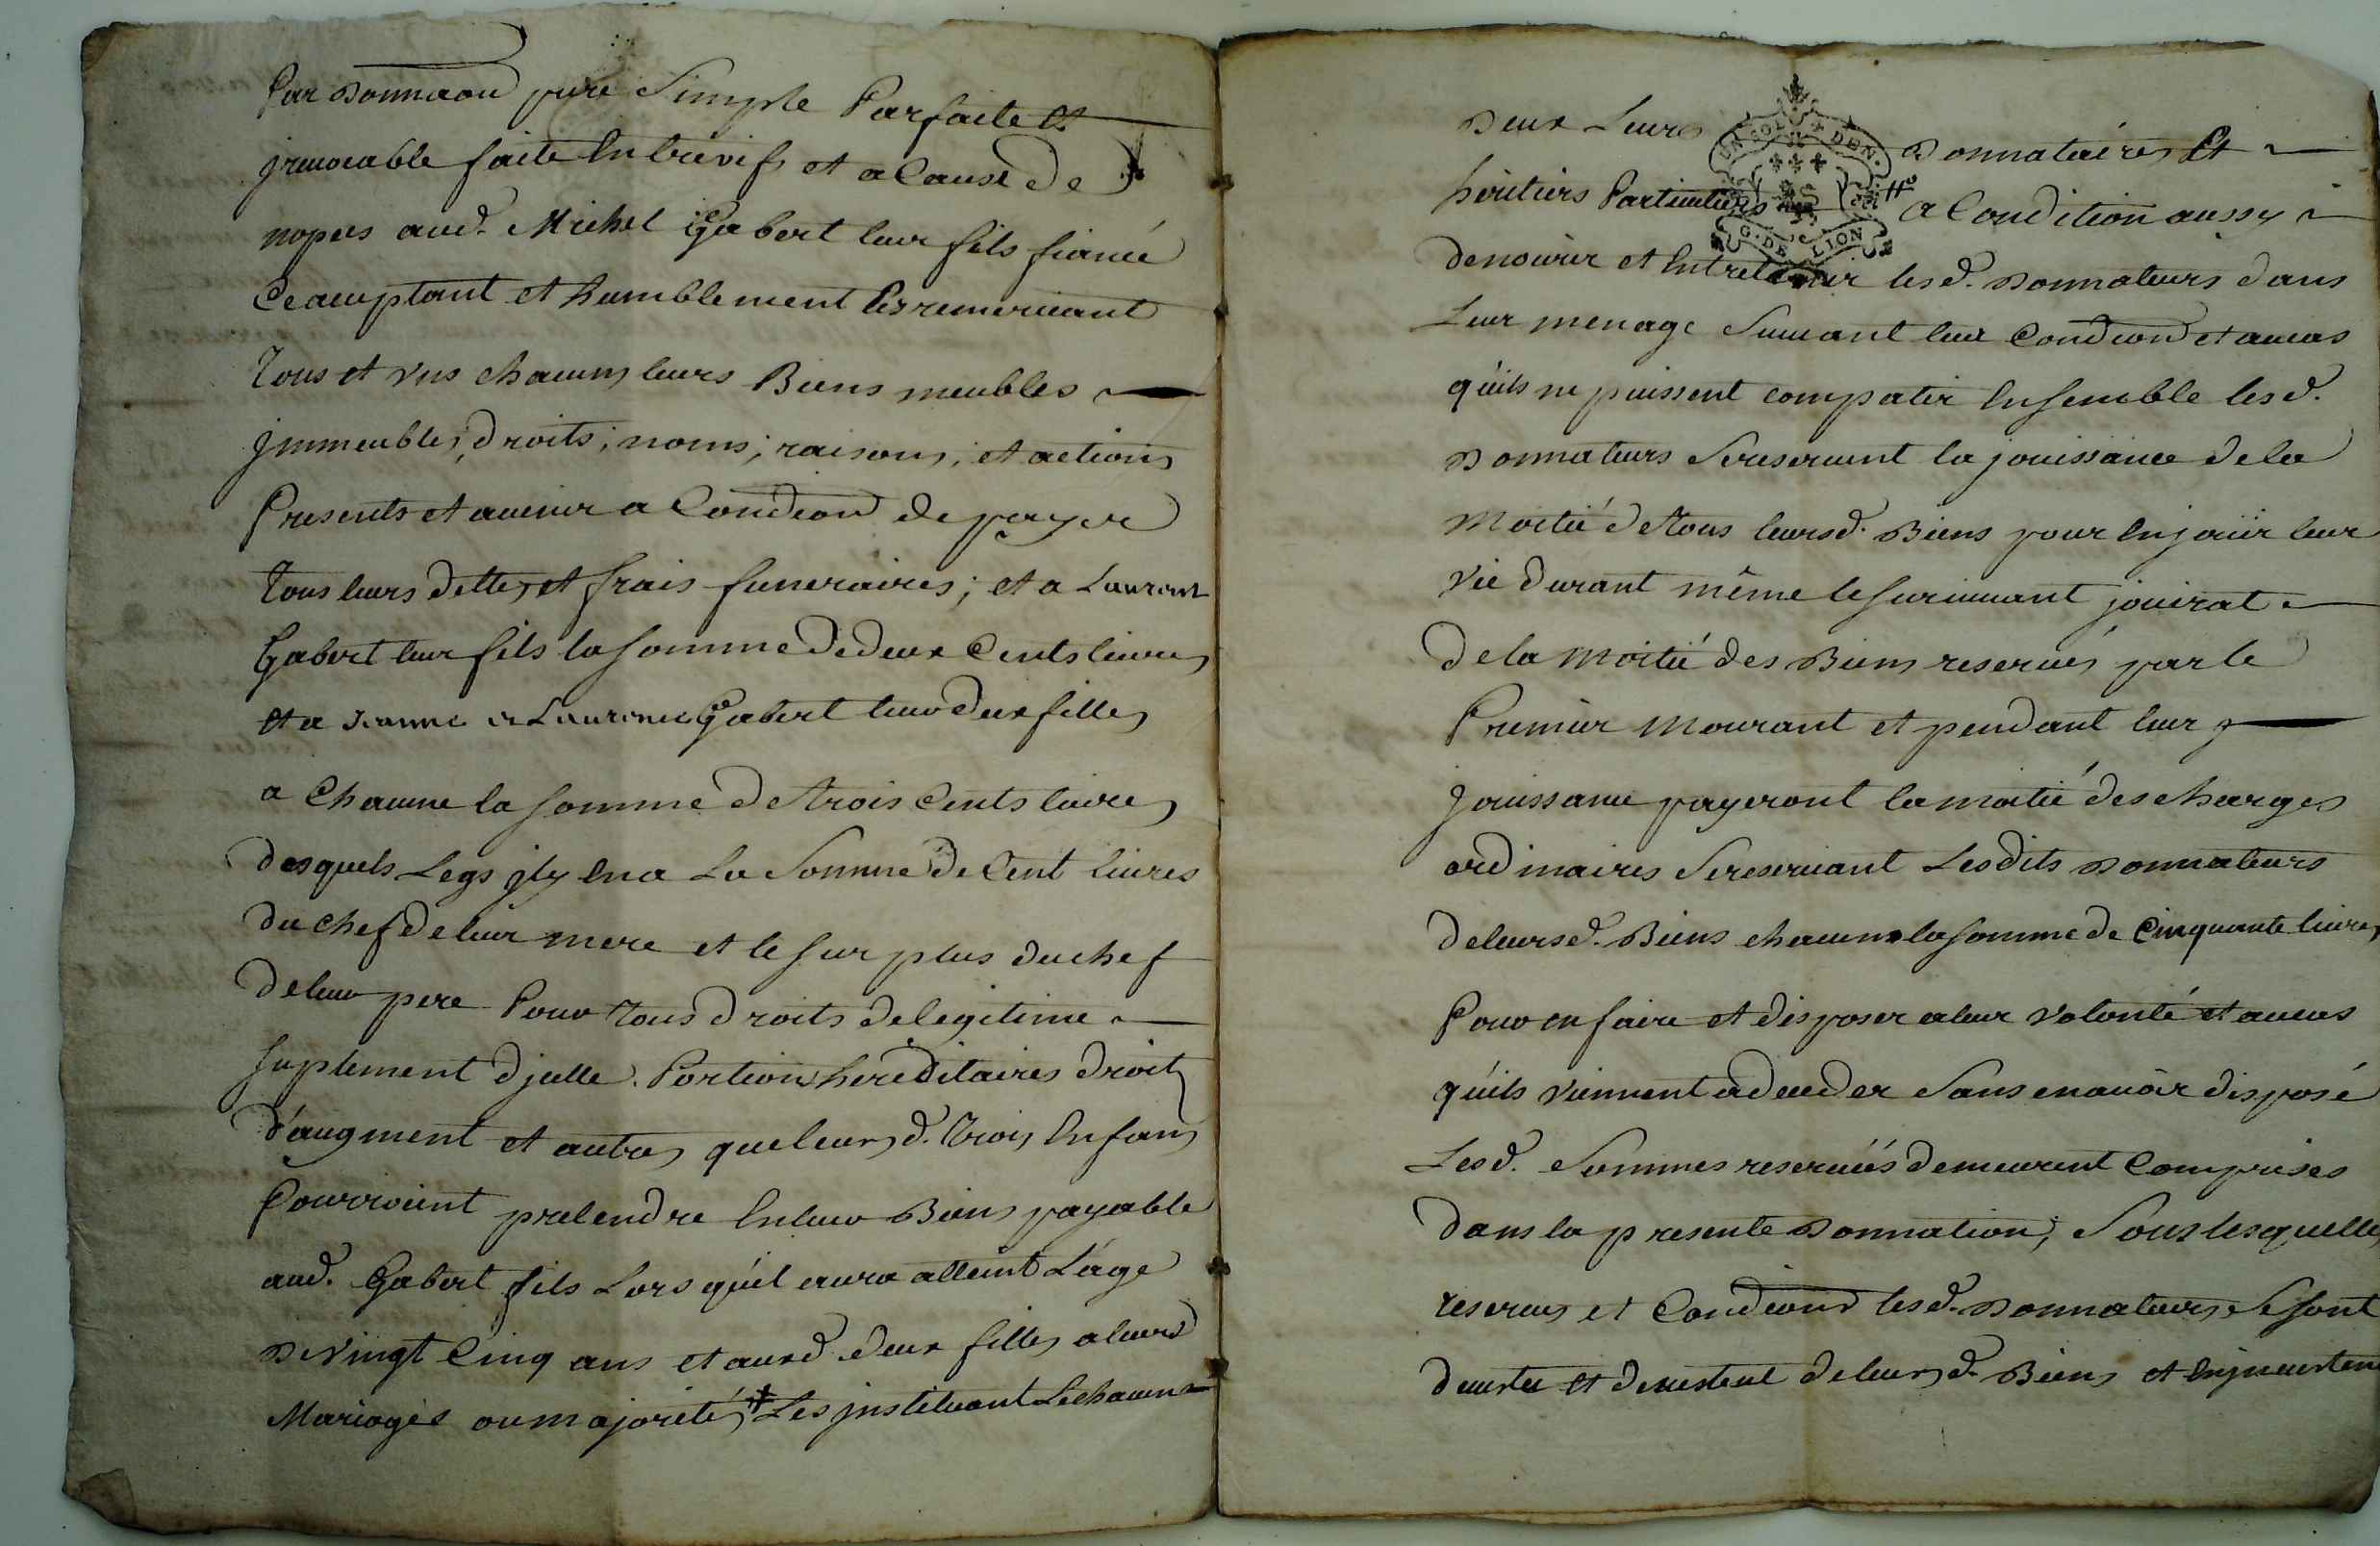 Par donnaon pure Simple Parfaite Et
jrreuocable faite Entreuifs et a Cause de
nopces aud. Michel Gabert leur fils fiancé
Ce acceptant et humblement les remerciant
Tous et vns chacuns leurs Biens meubles
jmmeubles, droits, noms, raisons, et actions
Presents et auenir a Condeon de payer
Tous leurs dettes et frais funeraires; et a Laurent
Gabert leur fils la somme de deux Cents liures
Et a Jeanne et Laurence Gabert leurs deux filles
a Chacune la somme de trois Cents liures
desquels Legs jl y En a La Somme de Cent liures
du chef de leur mere et le surplus du chef
de leur pere Pour Tous droits de legitime
suplement d'jcelle. Portion hereditaires droits
d'augment et autres que leurs d. Trois Enfans
Pourroient pretendre En leurs Biens payable
aud. Gabert fils Lors qu'il aura atteint L'age
De Vingt Cinq ans et auxd. deux filles a leurs
Mariages ou majorité, + Les jnstituant Le chacun
Deux Leurs Donnataires Et
heritiers Particuliers a Condition aussy
UN SOL 4 DEN.
G. DE LION
de nourir et Entretenir les d. Donnateurs dans
Leur menage Suiuant leur Condeon et au cas
qu'ils ne puissent compatir Ensemble les d.
Donnateurs Se reseruent la jouissance de la
Moitié de tous leurs d. Biens pour En jouir leur
Vie durant même le suruiuant jouirat
de la Moitié des Biens reserués par le
Premier Mourant et pendant leur
jouissance payeront la moitié des charges
ordinaires Se reseruant Les dits Donnateurs
de leurs d. Biens chacuns la somme de Cinquante liures
Pour en faire et disposer a leur Volonté et au cas
qu'ils viennent a deceder Sans en auoir disposé
Les d. Sommes reseruées demeurent Comprises
dans la presente Donnation; Sous lesquelles
reserues et Condeons les d. Donnateurs Se sont
deuetu et deuestent de leurs d. Biens et En jnuestent